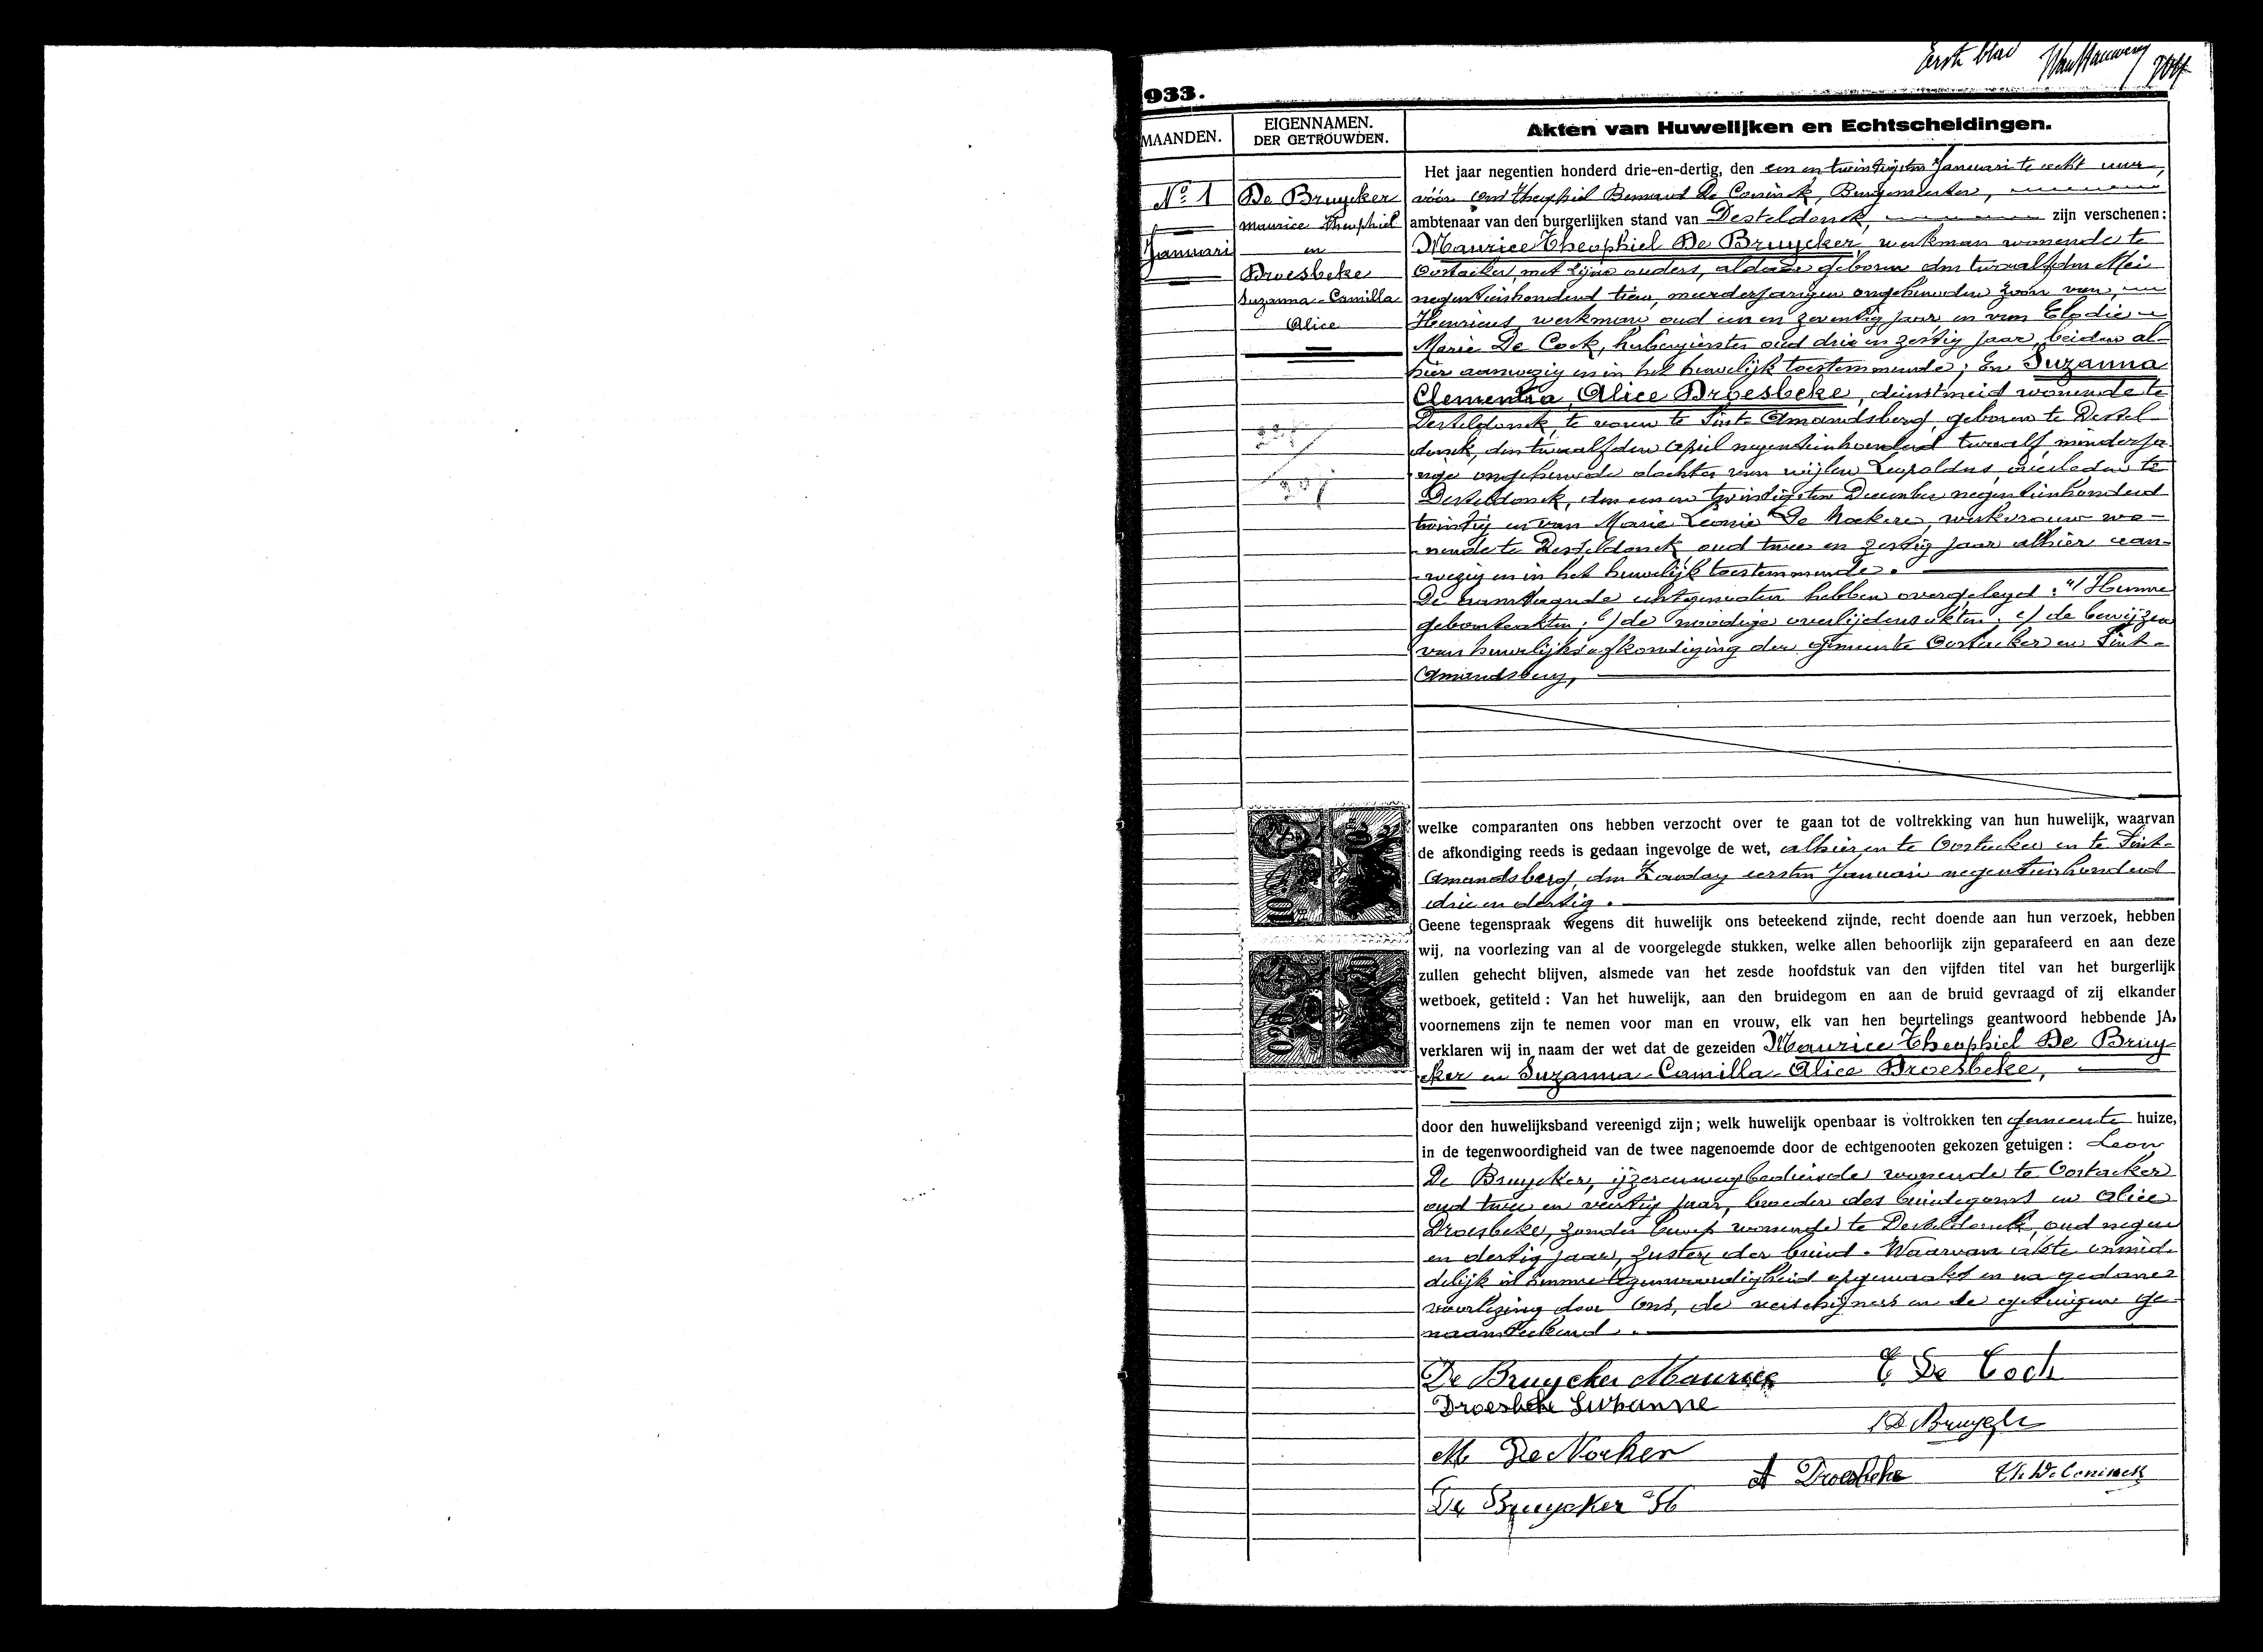 Eerste blad
933.
MAANDEN.
EIGENNAMEN.
DER GETROUWDEN.
Akten van Huwelijken en Echtscheidingen.
No 1
Januari
De Bruycker
Maurice Theophiel
en
Droesbeke
Suzanna-Camilla
Alice
Het jaar negentien honderd drie-en-dertig, den een en twintigsten Januari te acht uur,
vóór Ons Theophiel Bernard De Coninck, Burgemeester,
ambtenaar van den burgerlijken stand van Desteldonck, zijn verschenen:
Maurice Theophiel De Bruycker, werkman wonende te
Oostacker, met zijne ouders, aldaar geboren den twaalfden Mei
negentienhonderd tien, meerderjarigen ongehuwden zoon van
Henricus, werkman oud een en zeventig jaar en van Elodie
Marie De Cock, herbergierster oud drie en zestig jaar, beiden al-
hier aanwezig en in het huwelijk toestemmende; En Suzanna
Clementia Alice Droesbeke, dienstmeid wonende te
Desteldonck, te voren te Sint-Amandsberg, geboren te Destel-
donck, den twaalfden April negentienhonderd twaalf minderja-
rige ongehuwde dochter van wijlen Leopoldus, overleden te
Desteldonck, den een en twintigsten December negentienhonderd
twintig en van Marie Leonie De Nockere, werkvrouw wo-
nende te Desteldonck, oud twee en zestig jaar alhier aan-
wezig en in het huwelijk toestemmende.
De aanstaande echtgenoten hebben overgelegd: a/ Hunne
geboorteakten; b/ de noodige overlijdensakten; c/ de bewijzen
van huwelijksafkondiging der gemeente Oostacker en Sint-
Amandsberg,
welke comparanten ons hebben verzocht over te gaan tot de voltrekking van hun huwelijk, waarvan
de afkondiging reeds is gedaan ingevolge de wet, alhier en te Oostacker en te Sint-
Amandsberg, den Zondag eersten Januari negentienhonderd
drie en dertig.
Geene tegenspraak wegens dit huwelijk ons beteekend zijnde, recht doende aan hun verzoek, hebben
wij, na voorlezing van al de voorgelegde stukken, welke allen behoorlijk zijn geparafeerd en aan deze
zullen gehecht blijven, alsmede van het zesde hoofdstuk van den vijfden titel van het burgerlijk
wetboek, getiteld: Van het huwelijk, aan den bruidegom en aan de bruid gevraagd of zij elkander
voornemens zijn te nemen voor man en vrouw, elk van hen beurtelings geantwoord hebbende JA,
verklaren wij in naam der wet dat de gezeiden Maurice Theophiel De Bruy-
cker en Suzanna-Camilla-Alice Droesbeke,
door den huwelijksband vereenigd zijn; welk huwelijk openbaar is voltrokken ten gemeente huize,
in de tegenwoordigheid van de twee nagenoemde door de echtgenooten gekozen getuigen: Leon
De Bruycker, ijzerenwegbediende wonende te Oostacker
oud twee en veertig jaar, broeder des bruidegoms en Alice
Droesbeke, zonder beroep wonende te Desteldonck, oud negen
en dertig jaar, zuster der bruid. Waarvan akte onmid-
delijk in hunne tegenwoordigheid opgemaakt en na gedane
voorlezing door Ons, de verschijners en de getuigen ge-
naamteekend.
De Bruycker Maurice
E De Cock
Droesbeke Suzanne
M De Nocker
A Droesbeke
Th. De Coninck
De Bruycker H